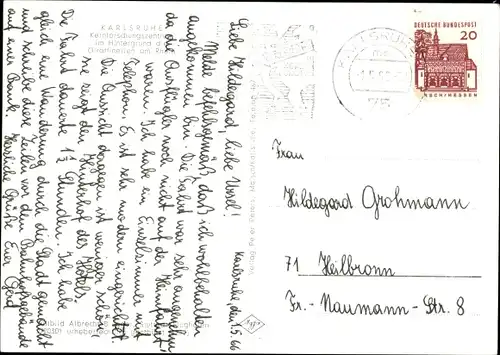 KARLSRUHE
Kernforschungszentrum
im Hintergrund d
Ölraffinerien am Rh
Karlsruhe, den 1.5.66
Liebe Hildegard, liebe Ursel!
Melde befehlsgemäß, daß ich wohlbehalten
angekommen bin. Die Fahrt war sehr angenehm
da die Ausflügler noch nicht auf der Heimfahrt
waren. Ich habe ein Einzelzimmer mit
Telephon. Es ist sehr modern eingerichtet.
Die Aussicht dagegen ist weniger schön,
sie zeigt den Hinterhof des Hotels.
Die Fahrt dauerte 1¾ Stunden. Ich habe
gleich eine Wanderung durch die Stadt gemacht
und schreibe diese Zeilen vor dem Bahnhofsgebäude
auf einer Bank. Herzliche Grüße Euer Gerd
KARLSRUHE
75
DEUTSCHE BUNDESPOST
20
LORSCH/HESSEN
Frau
Hildegard Grohmann
71 Heilbronn
Fr.-Naumann-Str. 8